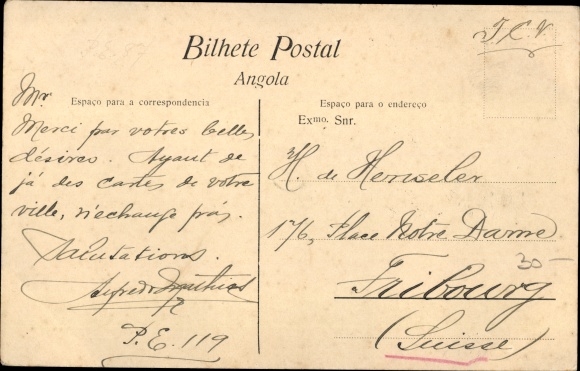 T.C.V.
Bilhete Postal
Angola
Espaço para a correspondencia
Mr
Merci par votres belles
désires. Ayant de
já des cartes de votre
ville, n'echange pás.
Salutations.
Alfredo
P.E. 119
Espaço para o endereço
Exmo. Snr.
H. de Henseler
176, Place Notre Dame
30-
Fribourg
(Suisse)